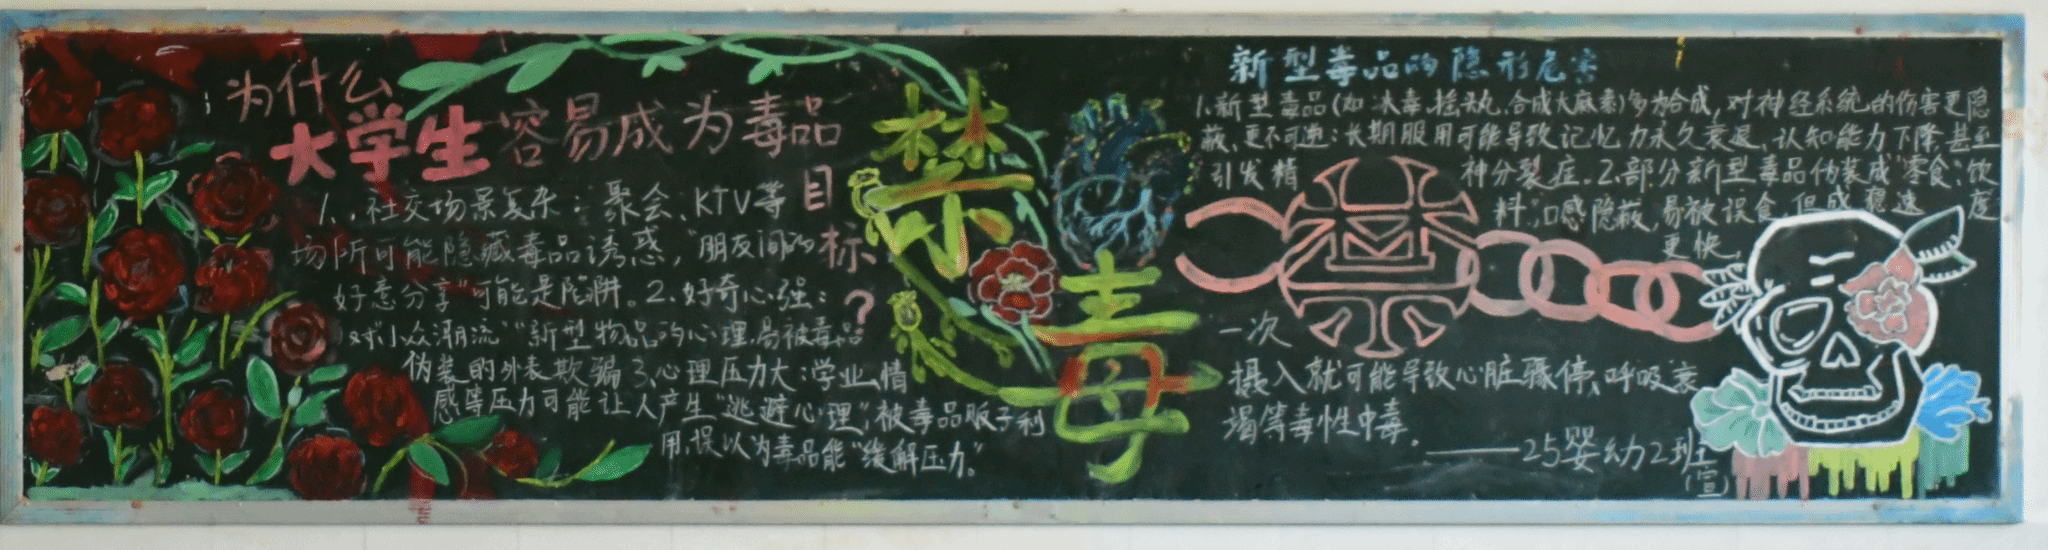 为什么
大学生容易成为毒品
目标?
1.、社交场景复杂：聚会、KTV等
场所可能隐藏毒品诱惑，"朋友间的
好意分享"可能是陷阱。2.好奇心强：
对"小众潮流""新型物品的心理,易被毒品
伪装的外表欺骗 3、心理压力大：学业、情
感等压力可能让人产生"逃避心理",被毒品贩子利
用,误以为毒品能"缓解压力。"
禁
毒
新型毒品的隐形危害
1.新型毒品(如冰毒、摇头丸、合成大麻素)多为合成,对神经系统的伤害更隐
蔽,更不可逆:长期服用可能导致记忆力永久衰退,认知能力下降,甚至
引发精神分裂症。2.部分新型毒品伪装成"零食、饮
料",口感隐蔽,易被误食,但成瘾速度
更快,
一次
摄入就可能导致心脏骤停、呼吸衰
竭等毒性中毒。
——25婴幼2班
(宣)